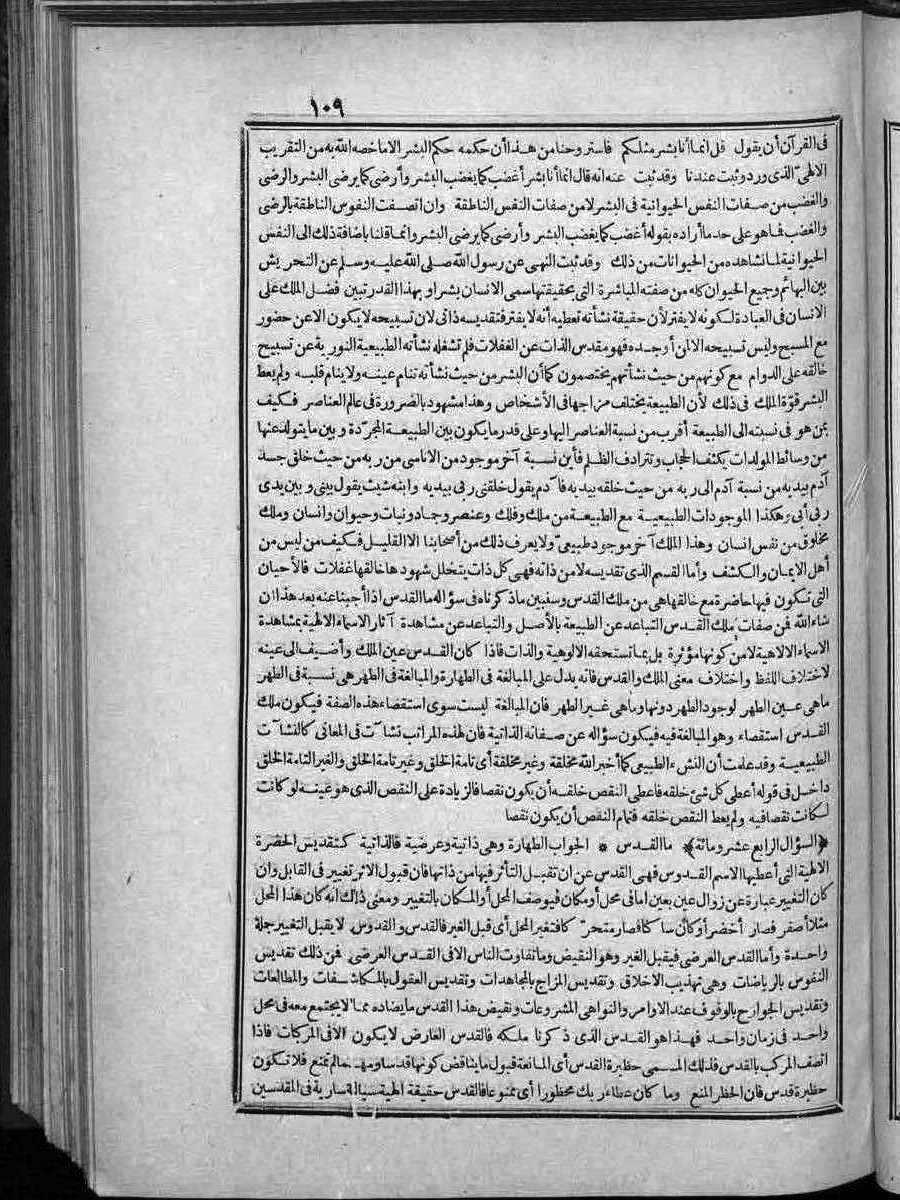 ١٠٩
فى القرآن أن يقول قل انما أنا بشر مثلكم فاستروحنا من هذا أن حكمه حكم البشر الاما خصه الله به من التقريب
الالهىّ الذى ورد وثبت عندنا وقد ثبت عنه انه قال انما أنا بشر أغضب كما يغضب البشر وأرضى كما يرضى البشر والرضى
والغضب من صفات النفس الحيوانية فى البشر لا من صفات النفس الناطقة وان اتصفت النفوس الناطقة بالرضى
والغضب فما هو على حد ما أراده بقوله أغضب كما يغضب البشر وأرضى كما يرضى البشر وانما قلنا باضافة ذلك الى النفس
الحيوانية لما نشاهده من الحيوانات من ذلك وقد ثبت النهى عن رسول الله صلى الله عليه وسلم عن التحريش
بين البهائم وجميع الحيوان كله من صفته المباشرة التى بحقيقتها سمى الانسان بشرا وبهذا القدر تبين فضل الملك على
الانسان فى العبادة لكونه لا يفتر لأن حقيقة نشأته تعطيه أنه لا يفتر فتقديسه ذاتى لان تسبيحه لا يكون الا عن حضور
مع المسبح وليس تسبيحه الا لمن أوجده فهو مقدس الذات عن الغفلات فلم تشغله نشأته الطبيعية النورية عن تسبيح
خالقه على الدوام مع كونهم من حيث نشأتهم يختصمون كما أن البشر من حيث نشأته تنام عينه ولا ينام قلبه ولم يعط
البشر قوّة الملك فى ذلك لأن الطبيعة يختلف مزاجها فى الأشخاص وهذا مشهود بالضرورة فى عالم العناصر فكيف
بمن هو فى نسبته الى الطبيعة أقرب من نسبة العناصر اليها وعلى قدر ما يكون بين الطبيعة المجرّدة وبين ما يتولد عنها
من وسائط المولدات يكثف الحجاب وتترادف الظلم فأين نسبة آخر موجود من الاناسى من ربه من حيث خلق جسد
آدم بيديه من نسبة آدم الى ربه من حيث خلقه بيديه فا دم يقول خلقنى ربى بيديه وابنه شيث يقول بينى وبين يدى
ربى أبى وهكذا الموجودات الطبيعية مع الطبيعة من ملك وفلك وعنصر وجماد ونبات وحيوان وانسان وملك
مخلوق من نفس انسان وهذا الملك آخر موجود طبيعىّ ولا يعرف ذلك من أصحابنا الا القليل فكيف من ليس من
أهل الايمان والكشف وأما القسم الذى تقديسه لا من ذاته فهى كل ذات يتخلل شهودها خالقها غفلات فالأحيان
التى تكون فيها حاضرة مع خالقها هى من ملك القدس وسنبين ما ذكرناه فى سؤاله ما القدس اذا أجبنا عنه بعد هذا ان
شاء الله فمن صفات ملك القدس التباعد عن الطبيعة بالأصل والتباعد عن مشاهدة آثار الاسماء الالهية بمشاهدة
الاسماء الالاهية لا من كونها مؤثرة بل بما تستحقه الالوهية والذات فاذا كان القدس عين الملك وأضيف الى عينه
لاختلاف اللفظ واختلاف معنى الملك والقدس فانه يدل على المبالغة فى الطهارة والمبالغة فى الطهر هى نسبة فى الطهر
ما هى عين الطهر لوجود الطهر دونها وما هى غير الطهر فان المبالغة ليست سوى استقصاء هذه الصفة فيكون ملك
القدس استقصاء وهو المبالغة فيه فيكون سؤاله عن صفاته الذاتية فان لهذه المراتب نشا ت فى المعانى كالنشا ت
الطبيعية وقد علمت أن النشء الطبيعى كما أخبر الله مخلقة وغير مخلقة أى تامة الخلق وغير تامة الخلق والغير التامة الخلق
داخل فى قوله أعطى كل شئ خلقه فاعطى النقص خلقه أن يكون نقصا فالزيادة على النقص الذى هو عينه لو كانت
لكانت نقصا فيه ولم يعط النقص خلقه فتمام النقص أن يكون نقصا
﴿السؤال الرابع عشر ومائة﴾ ما القدس * الجواب الطهارة وهى ذاتية وعرضية فالذاتية كتقديس الحضرة
الالهية التى أعطيها الاسم القدوس فهى القدس عن أن تقبل التأثر فيها من ذاتها فان قبول الاثر تغيير فى القابل وان
كان التغيير عبارة عن زوال عين بعين اما فى محل أو مكان فيوصف المحل أو المكان بالتغيير ومعنى ذلك انه كان هذا المحل
مثلا أصفر فصار أخضر أو كان ساكنا فصار متحرّكا فتغير المحل أى قبل الغير فالقدس والقدوس لا يقبل التغيير جملة
واحدة وأما القدس العرضى فيقبل الغير وهو النقيض وما تفاوت الناس الا فى القدس العرضى فمن ذلك تقديس
النفوس بالرياضات وهى تهذيب الاخلاق وتقديس المزاج بالمجاهدات وتقديس العقول بالمكاشفات والمطالعات
وتقديس الجوارح بالوقوف عند الاوامر والنواهى المشروعات ونقيض هذا القدس ما يضاده مما لا يجتمع معه فى محل
واحد فى زمان واحد فهذا هو القدس الذى ذكرنا ملكه فالقدس العارض لا يكون الا فى المركبات فاذا
اتصف المركب بالقدس فذلك المسمى حظيرة القدس أى المانعة قبول ما يناقض كونها قدسا ومهما لم تمنع فلا تكون
حظيرة قدس فان الحظر المنع وما كان عطاء ربك محظورا أى ممنوعا فالقدس حقيقة الهية سيالة سارية فى المقدسين